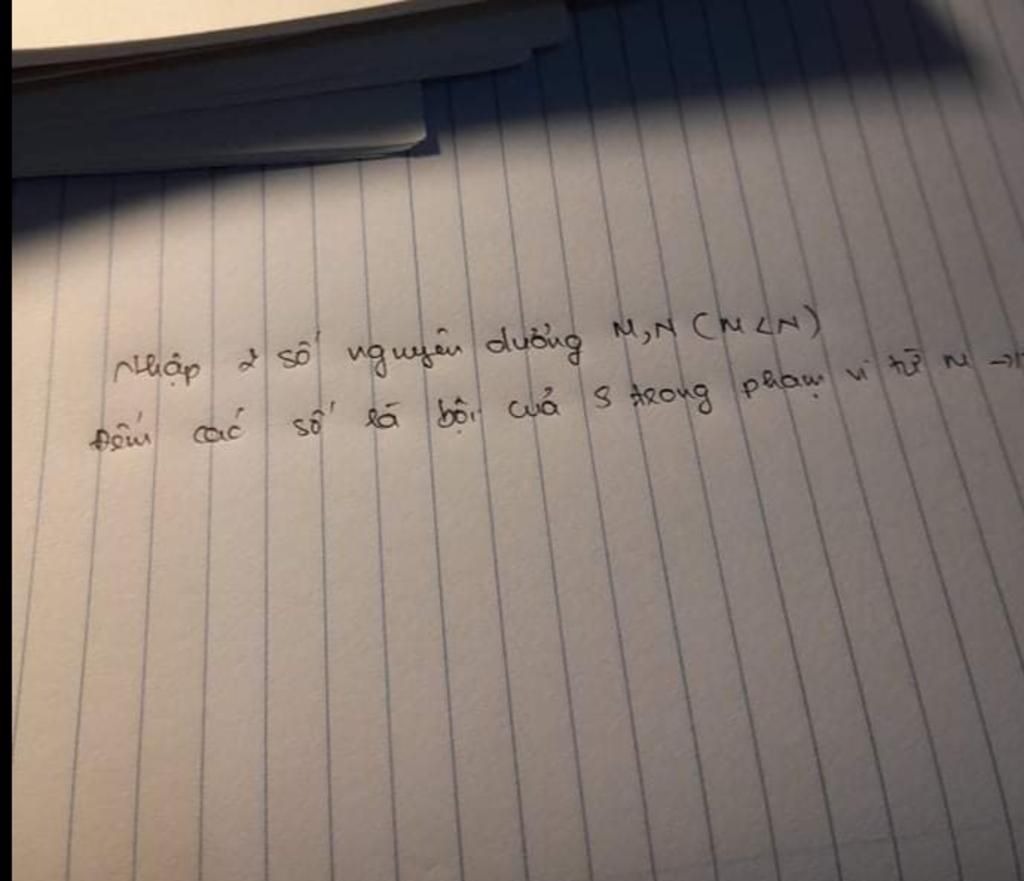 Nhập 2 số nguyên dương M,N (M<N)
Đếm các số là bội của 5 trong phạm vi từ M →